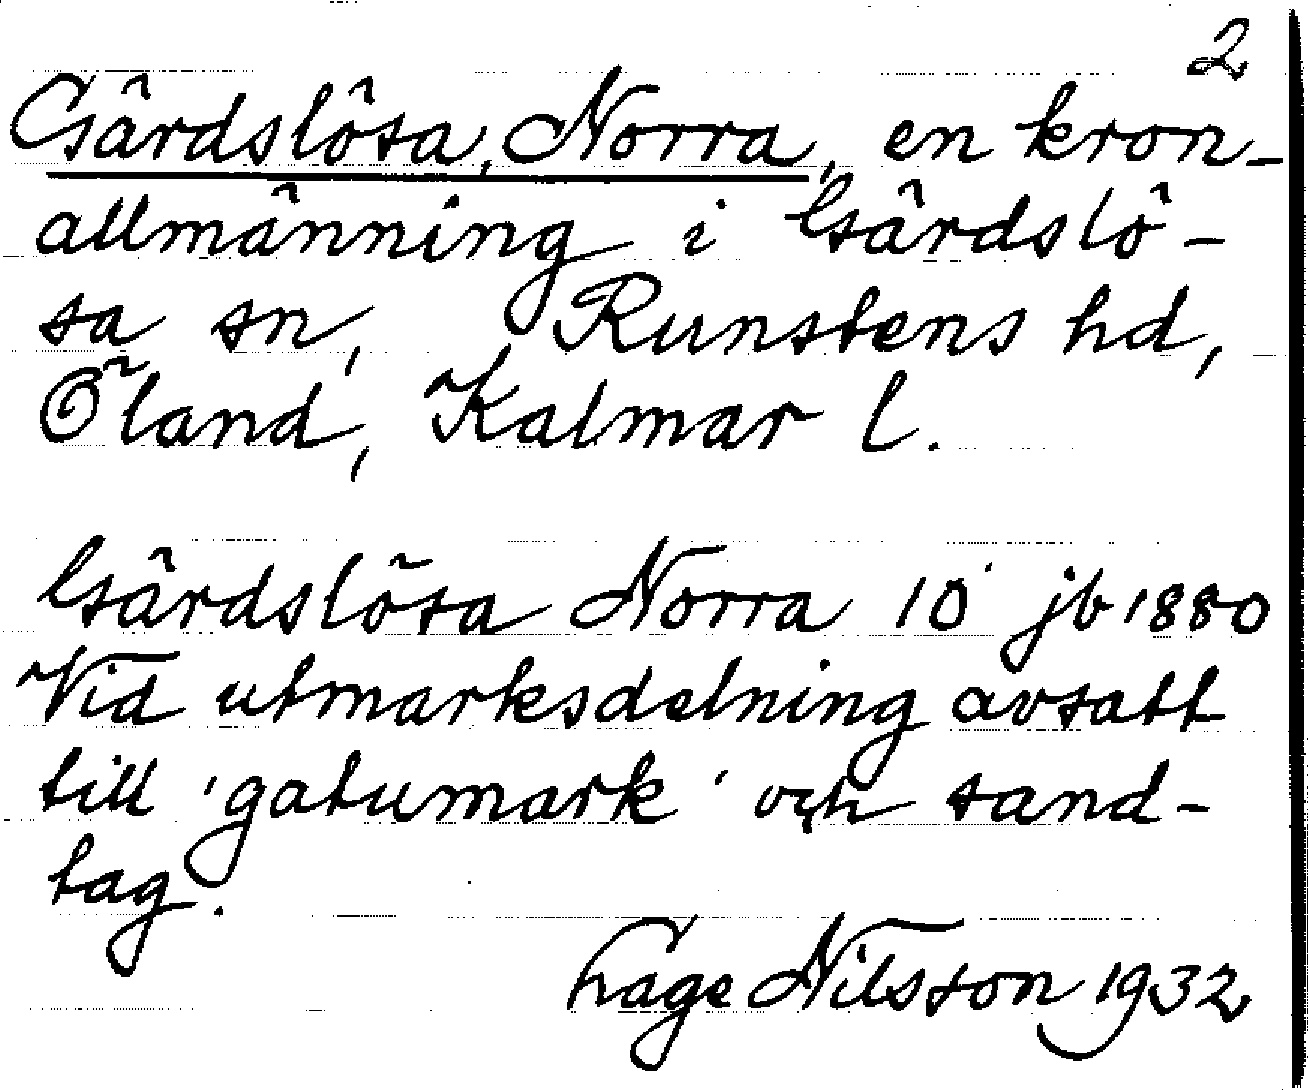 2
Gärdslösa, Norra, en kron-
allmänning i Gärdslö-
sa sn, Runstens hd,
Öland, Kalmar l.
Gärdslösa Norra 10 jb 1880
Vid utmarksdelning avsatt
till 'gatumark' och sand-
tag.
Hage Nilsson 1932